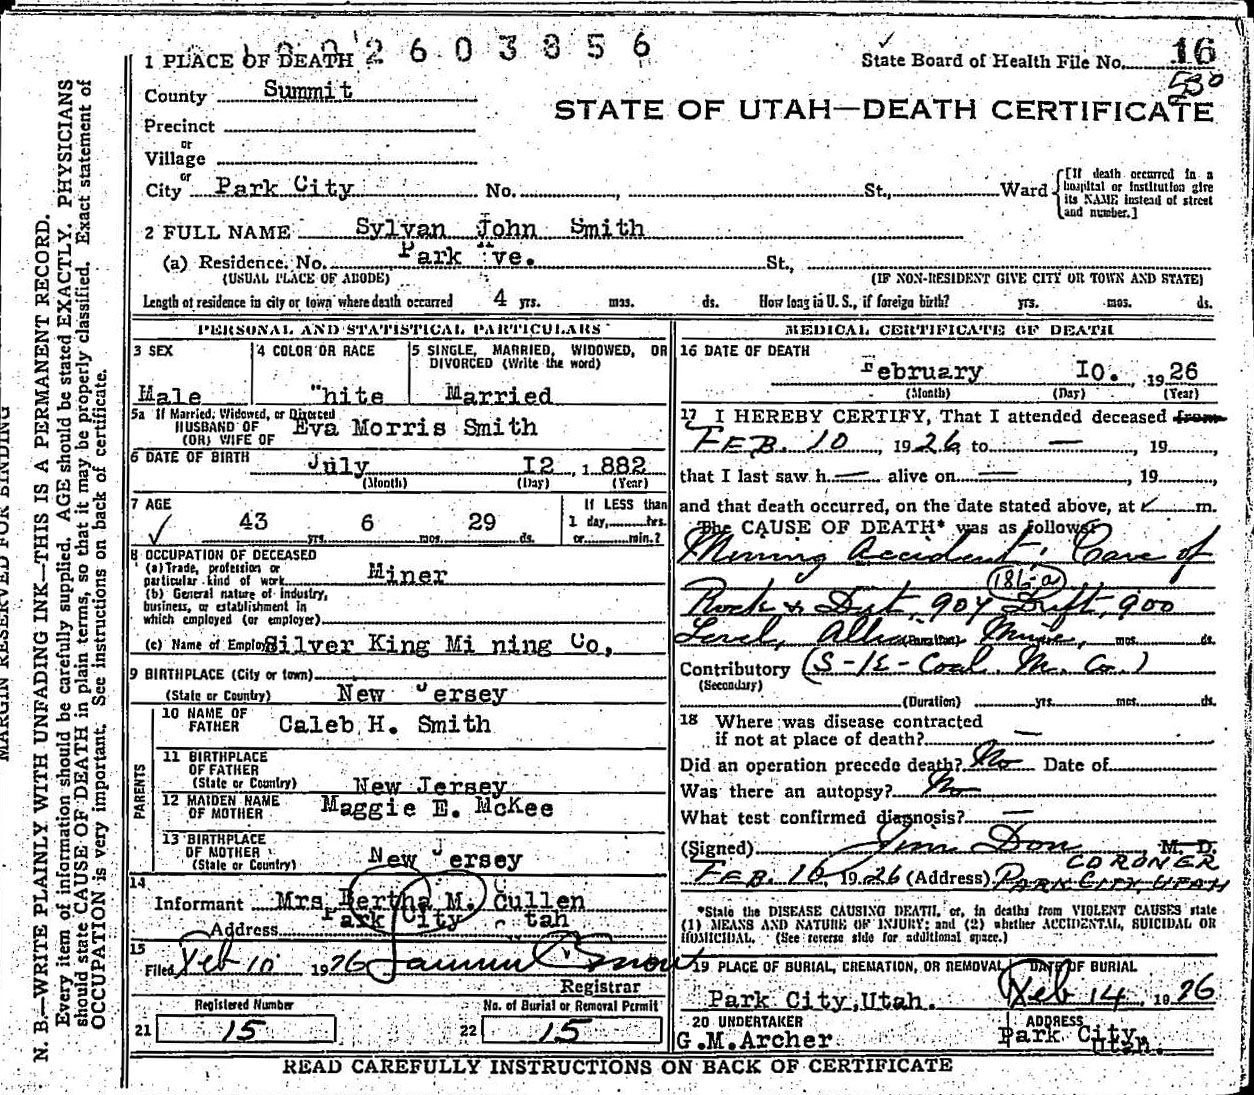 2 6 0 3 8 5 6
1 PLACE OF DEATH
State Board of Health File No. 16
530
County Summit
STATE OF UTAH—DEATH CERTIFICATE
Precinct
or
Village
or
City Park City No. , St., Ward
[If death occurred in a hospital or institution give its NAME instead of street and number.]
2 FULL NAME Sylvan John Smith
(a) Residence. No. Park ve. St.,
(USUAL PLACE OF ABODE) (IF NON-RESIDENT GIVE CITY OR TOWN AND STATE)
Length of residence in city or town where death occurred 4 yrs. mos. ds. How long in U. S., if foreign birth? yrs. mos. ds.
PERSONAL AND STATISTICAL PARTICULARS
3 SEX
Male
4 COLOR OR RACE
"hite
5 SINGLE, MARRIED, WIDOWED, OR DIVORCED (Write the word)
Married
5a If Married, Widowed, or Divorced
HUSBAND OF
(OR) WIFE OF Eva Morris Smith
6 DATE OF BIRTH July I2 , 1 882
(Month) (Day) (Year)
7 AGE
43 yrs. 6 mos. 29 ds.
If LESS than
1 day, hrs.
or min.?
8 OCCUPATION OF DECEASED
(a) Trade, profession or
particular kind of work Miner
(b) General nature of industry,
business, or establishment in
which employed (or employer)
(c) Name of Employer Silver King Mi ning Co,
9 BIRTHPLACE (City or town)
(State or Country) New Jersey
PARENTS
10 NAME OF
FATHER Caleb H. Smith
11 BIRTHPLACE
OF FATHER
(State or Country) New Jersey
12 MAIDEN NAME
OF MOTHER Maggie E. McKee
13 BIRTHPLACE
OF MOTHER
(State or Country) New Jersey
14
Informant Mrs Bertha M. Cullen
Address Park City tah
15
Filed Feb 10 1926
Registrar
Registered Number
21 15
No. of Burial or Removal Permit
22 15
MEDICAL CERTIFICATE OF DEATH
16 DATE OF DEATH
February I0. , 1926
(Month) (Day) (Year)
17 I HEREBY CERTIFY, That I attended deceased from
FEB. 10 , 1926, to — , 19 ,
that I last saw h — alive on — , 19 ,
and that death occurred, on the date stated above, at ✓ m.
The CAUSE OF DEATH* was as follows:
Mining accident, Cave of
186-a
Rock & Dirt, 904 Drift, 900
Level, Alliance Mine,
(Duration) mos. ds.
Contributory (S-K-Coal. M. Co.)
(Secondary)
(Duration) yrs. mos. ds.
18 Where was disease contracted
if not at place of death? —
Did an operation precede death? No Date of
Was there an autopsy? No
What test confirmed diagnosis? —
(Signed) Jim Don , M. D.
CORONER
FEB. 10, 1926 (Address) PARK CITY, UTAH
*State the DISEASE CAUSING DEATH, or, in deaths from VIOLENT CAUSES state
(1) MEANS AND NATURE OF INJURY; and (2) whether ACCIDENTAL, SUICIDAL OR
HOMICIDAL. (See reverse side for additional space.)
19 PLACE OF BURIAL, CREMATION, OR REMOVAL
Park City, Utah.
DATE OF BURIAL
Feb 14, 1926
20 UNDERTAKER
G.M.Archer
ADDRESS
Park City,
Utah.
READ CAREFULLY INSTRUCTIONS ON BACK OF CERTIFICATE
MARGIN RESERVED FOR BINDING
N. B.—WRITE PLAINLY WITH UNFADING INK—THIS IS A PERMANENT RECORD.
Every item of information should be carefully supplied. AGE should be stated EXACTLY. PHYSICIANS
should state CAUSE OF DEATH in plain terms, so that it may be properly classified. Exact statement of
OCCUPATION is very important. See instructions on back of certificate.